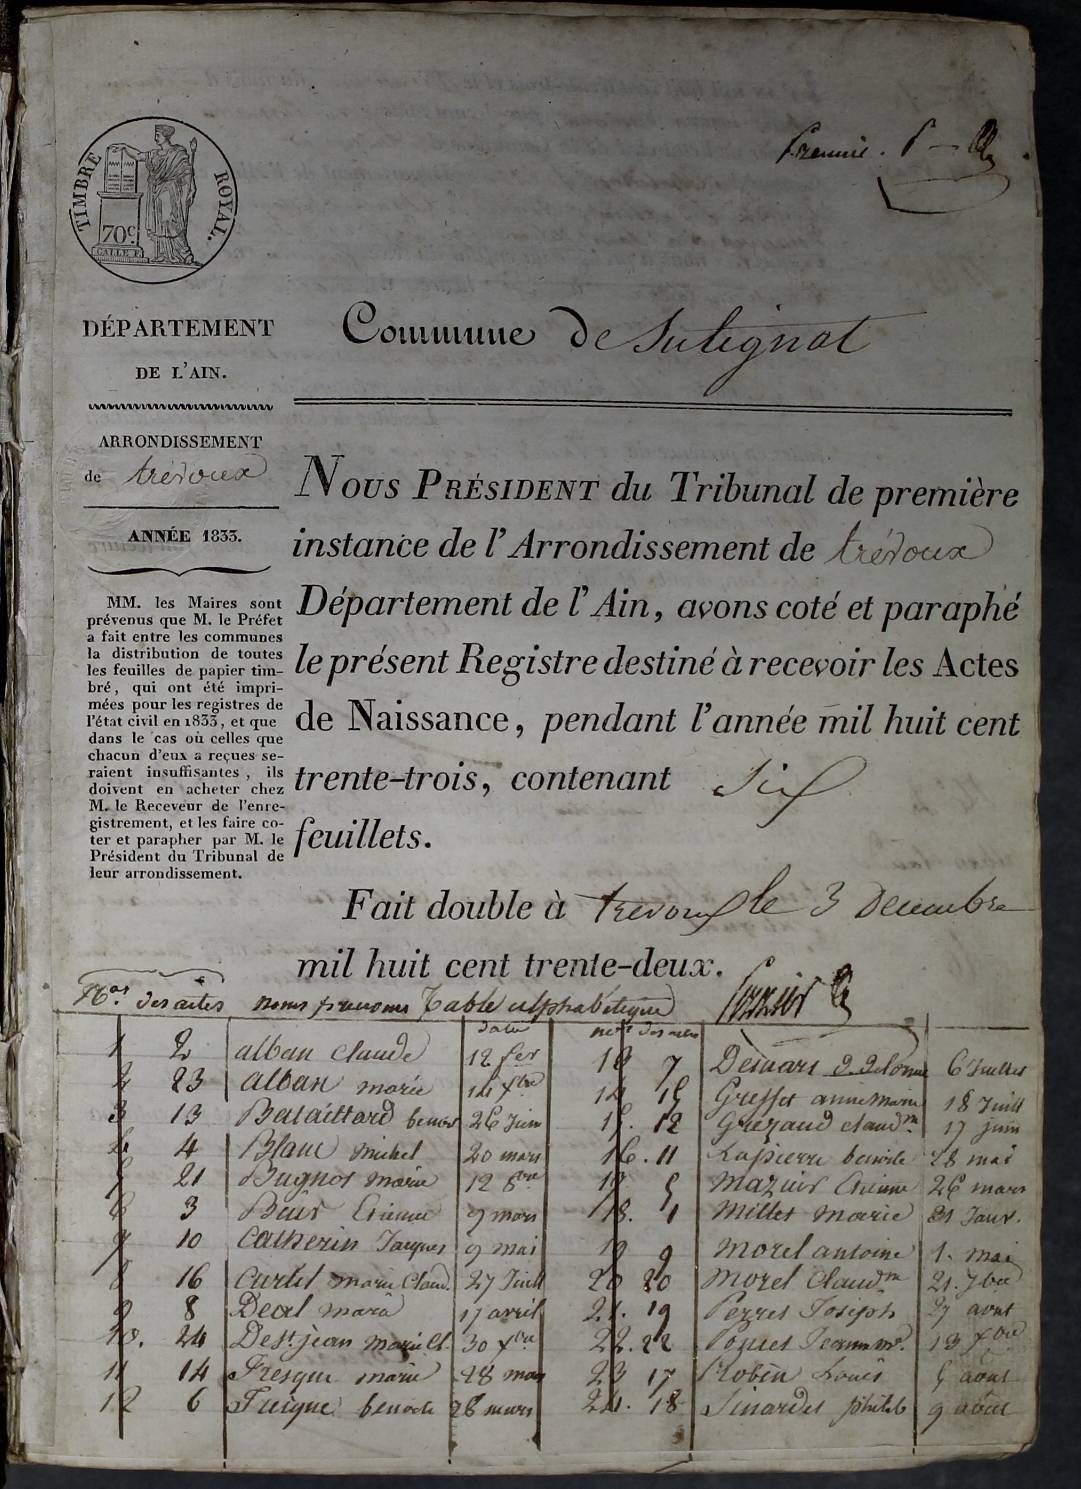 TIMBRE ROYAL.
70c
Premier.
DÉPARTEMENT
DE L'AIN.
Commune de Sulignat
ARRONDISSEMENT
de trévoux
ANNÉE 1833.
MM. les Maires sont
prévenus que M. le Préfet
a fait entre les communes
la distribution de toutes
les feuilles de papier tim-
bré, qui ont été impri-
mées pour les registres de
l'état civil en 1833, et que
dans le cas où celles que
chacun d'eux a reçues se-
raient insuffisantes, ils
doivent en acheter chez
M. le Receveur de l'enre-
gistrement, et les faire co-
ter et parapher par M. le
Président du Tribunal de
leur arrondissement.
NOUS PRÉSIDENT du Tribunal de première
instance de l'Arrondissement de trévoux
Département de l'Ain, avons coté et paraphé
le présent Registre destiné à recevoir les Actes
de Naissance, pendant l'année mil huit cent
trente-trois, contenant Six
feuillets.
Fait double à trevoux le 3 Decembre
mil huit cent trente-deux.
Nos des actes noms prenoms Table alphabétique
date
1 2 alban Claude 12 fer
2 23 alban marie 14 Xbre
3 13 Bataillard benoit 26 Juin
4 4 Blanc michel 20 mars
5 21 Bugnot marie 12 8bre
6 3 Etienne 9 mars
7 10 Catherin Jacques 9 mai
8 16 Curtet marie Claud. 27 Juill
9 8 marie 17 avril
10. 24 Dest jean marie Cl. 30 Xbre
11 14 Fresque marie 28
12 6 benoite 28 mars
7 6 Juillet
14 15 Greffet annemarie 18 Juill
15. 12 claudme 17 juin
16. 11 Lapierre benoite 28 mai
17 5 Mazuir Etienne 26 mars
18. 1 Millet marie 21 Janv.
19 9 Morel antoine 1. mai
20 20 Morel Claudm 21. 7bre
21. 19 Perret Joseph 27 aout
22. 22 Jeanne me 13 Xbre
23 17 Robin Louis 5 aout
24. 18 philib 9 aout